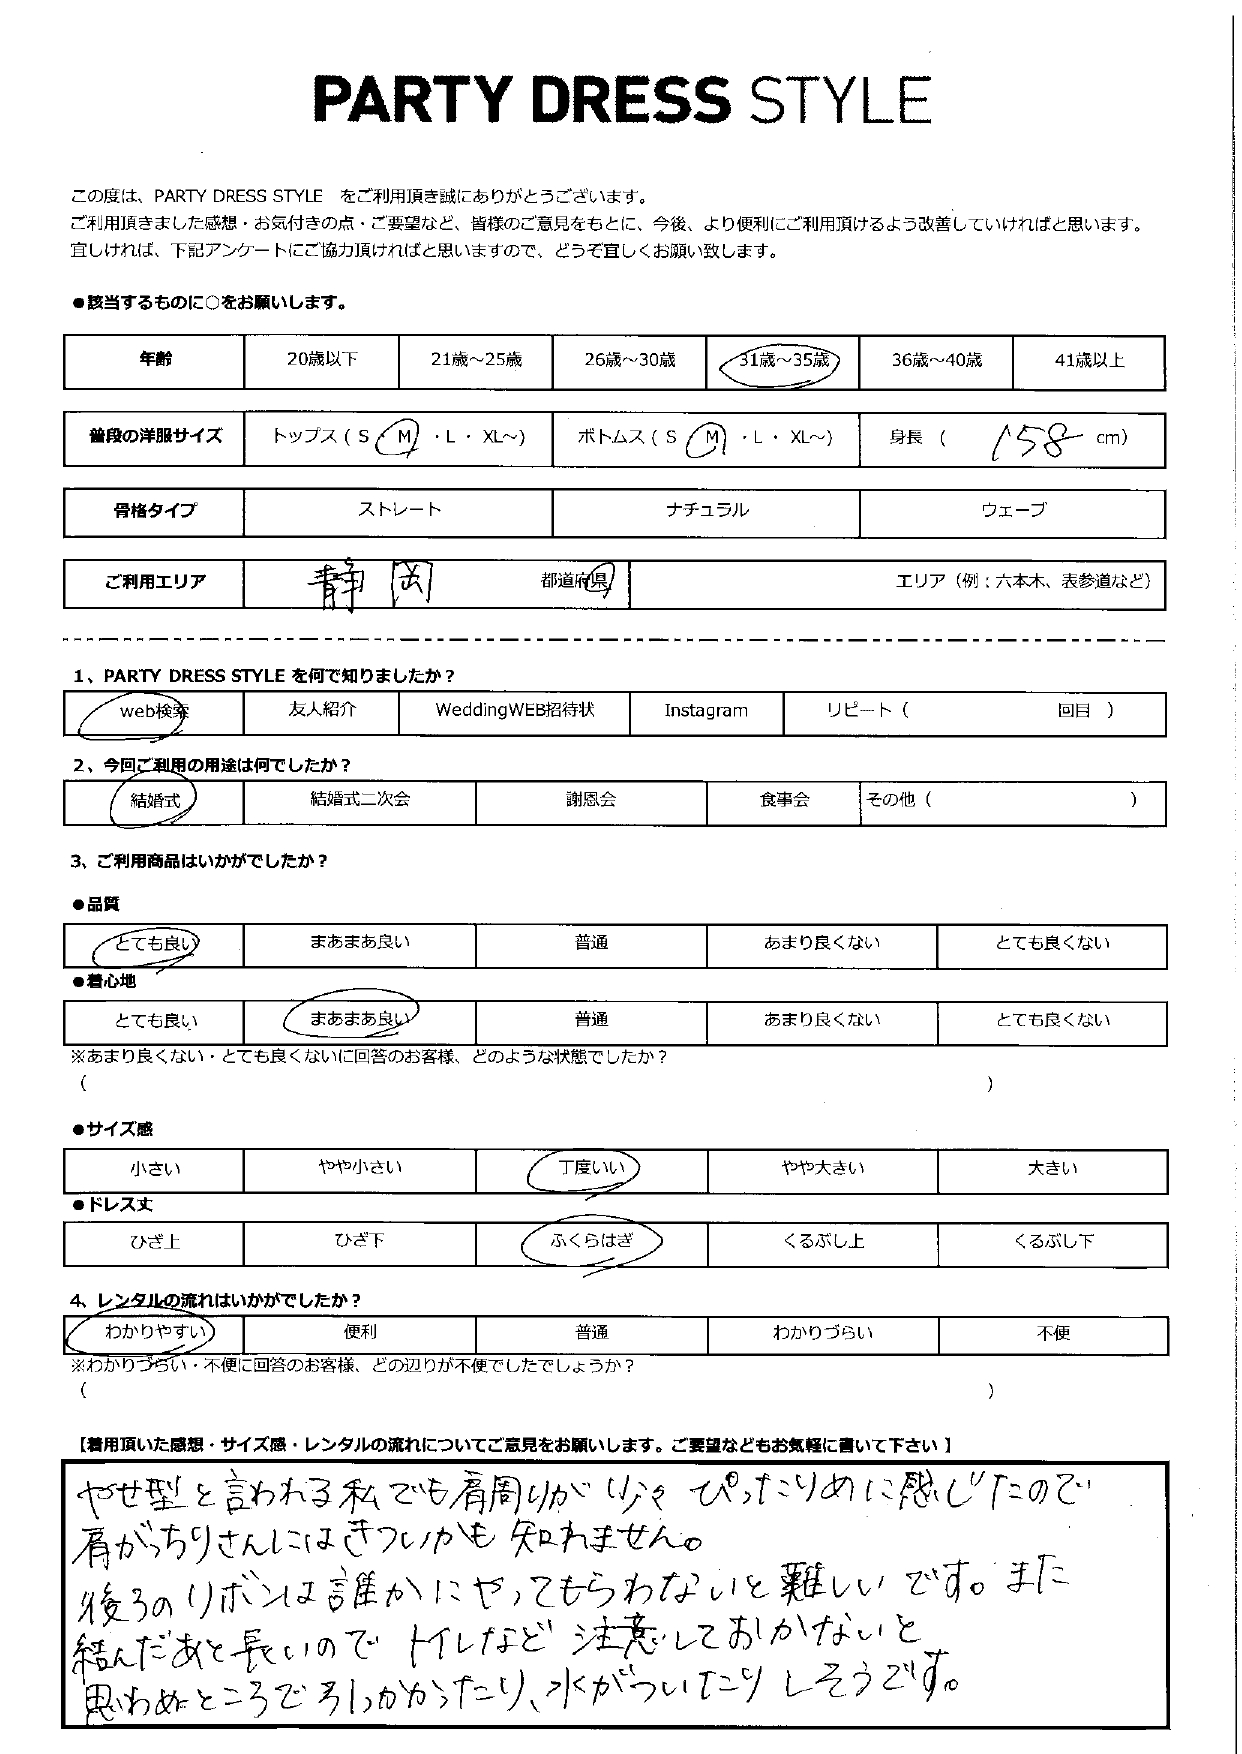 PARTY DRESS STYLE
この度は、PARTY DRESS STYLE をご利用頂き誠にありがとうございます。
ご利用頂きました感想・お気付きの点・ご要望など、皆様のご意見をもとに、今後、より便利にご利用頂けるよう改善していければと思います。
宜しければ、下記アンケートにご協力頂ければと思いますので、どうぞ宜しくお願い致します。
●該当するものに○をお願いします。
年齢 20歳以下 21歳～25歳 26歳～30歳 31歳～35歳 36歳～40歳 41歳以上
普段の洋服サイズ トップス ( S M ・L ・ XL～) ボトムス ( S M ・L ・ XL～) 身長 ( 158 cm)
骨格タイプ ストレート ナチュラル ウェーブ
ご利用エリア 静岡 都道府県 エリア（例：六本木、表参道など）
1、PARTY DRESS STYLE を何で知りましたか？
web検索 友人紹介 WeddingWEB招待状 Instagram リピート（ 回目 ）
2、今回ご利用の用途は何でしたか？
結婚式 結婚式二次会 謝恩会 食事会 その他（ ）
3、ご利用商品はいかがでしたか？
●品質
とても良い まあまあ良い 普通 あまり良くない とても良くない
●着心地
とても良い まあまあ良い 普通 あまり良くない とても良くない
※あまり良くない・とても良くないに回答のお客様、どのような状態でしたか？
（ ）
●サイズ感
小さい やや小さい 丁度いい やや大きい 大きい
●ドレス丈
ひざ上 ひざ下 ふくらはぎ くるぶし上 くるぶし下
4、レンタルの流れはいかがでしたか？
わかりやすい 便利 普通 わかりづらい 不便
※わかりづらい・不便に回答のお客様、どの辺りが不便でしたでしょうか？
（ ）
【着用頂いた感想・サイズ感・レンタルの流れについてご意見をお願いします。ご要望などもお気軽に書いて下さい 】
やせ型と言われる私でも肩周りが少々ぴったりめに感じたので
肩がっちりさんにはきついかも知れません。
後ろのリボンは誰かにやってもらわないと難しいです。また
結んだあと長いのでトイレなど注意しておかないと
思わぬところでひっかかったり、水がついたりしそうです。